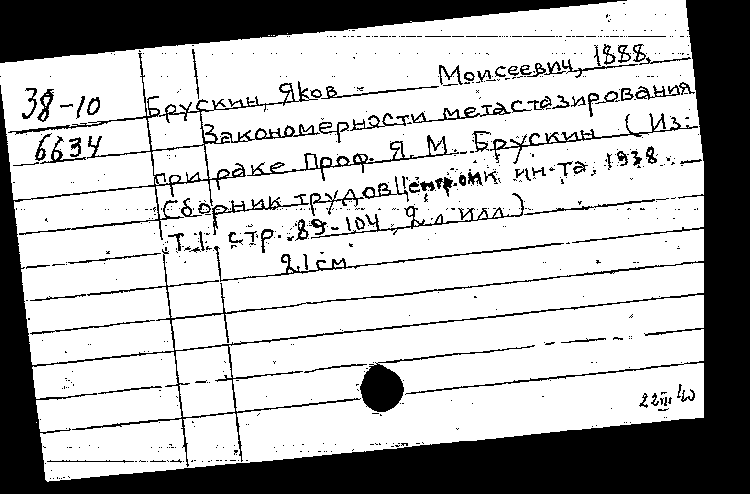 38-10
6634
Брускин, Яков Моисеевич, 1888.
Закономерности метастазирования
при раке. Проф. Я. М. Брускин (Из:
Сборник трудов Центр. онк ин-та, 1938.
Т. 1. стр. 89-104, 2 л илл.)
21 см.
22 III 40